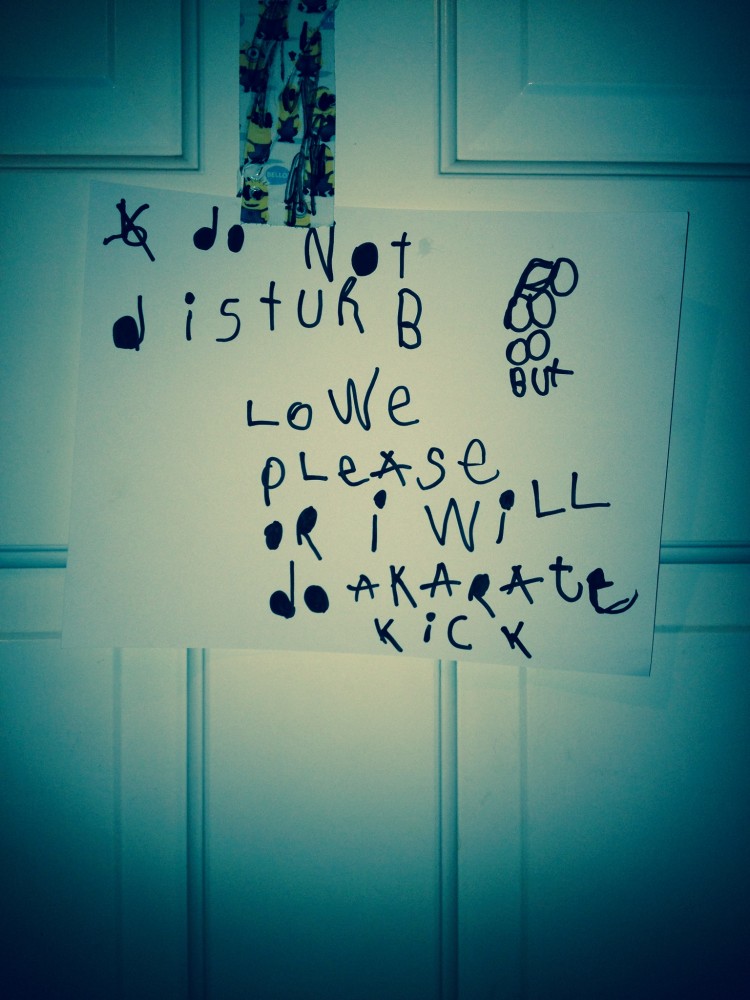 do Not
disturB
BUt
Lowe
pLeAse
oR i WiLL
do AKARAte
KicK
BELLO